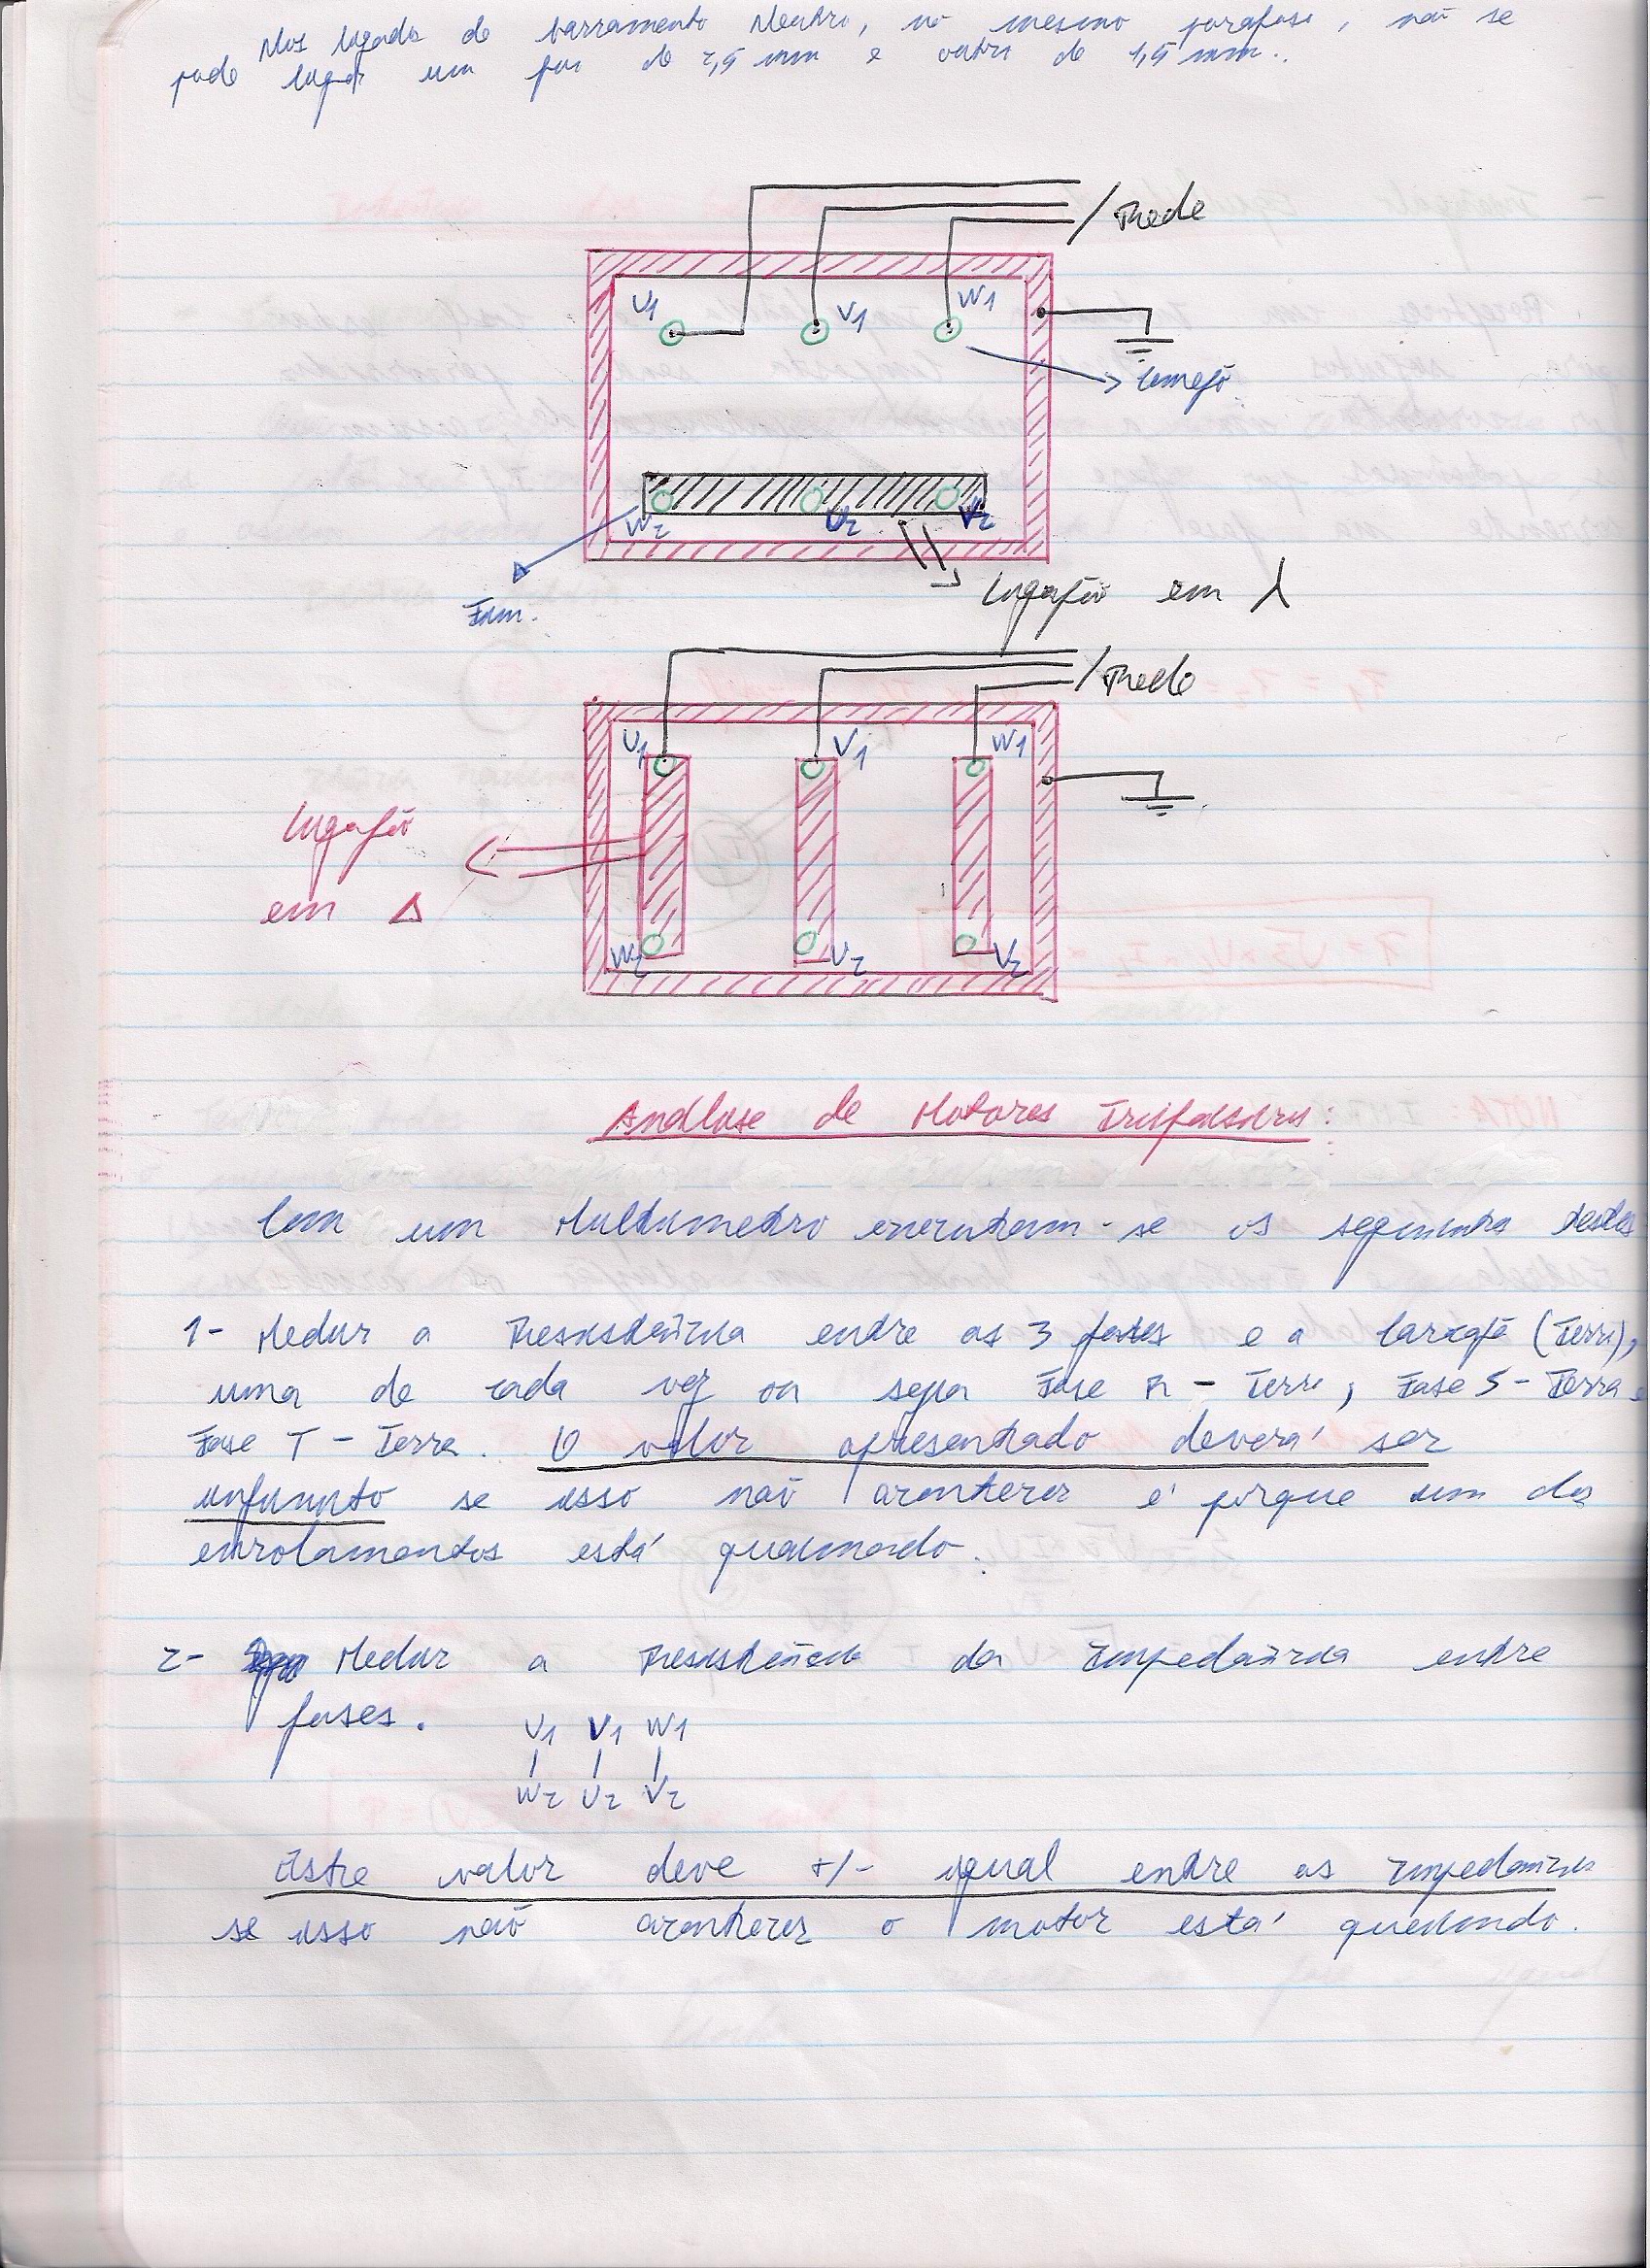 Nas ligações do barramento Neutro, no mesmo parafuso, não se
pode ligar um fio de 2,5 mm e outro de 1,5 mm.
/ Rede
U1 V1 W1
Começo
W2 U2 V2
Fim.
Ligação em λ
/ Rede
U1 V1 W1
Ligação
em Δ
W2 U2 V2
Análise de Motores Trifásicos:
Com um Multímetro executam-se os seguintes testes
1- Medir a Resistência entre as 3 fases e a Carcaça (Terra),
uma de cada vez ou seja Fase R - Terra, Fase S - Terra e
Fase T - Terra. O valor apresentado deverá ser
infinito se isso não acontecer é porque um dos
enrolamentos está queimado.
2- Medir a Resistência da Impedância entre
fases.
U1 V1 W1
| | |
W2 U2 V2
Este valor deve +/- igual entre as impedâncias
se isso não acontecer o motor está queimado.